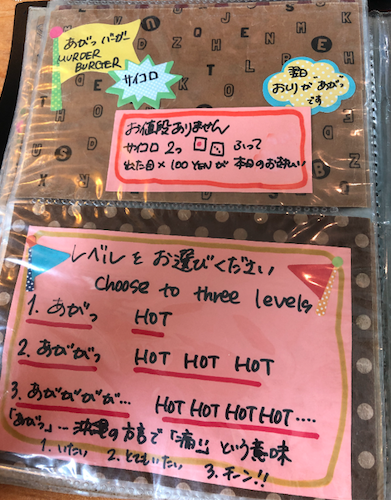 あがっ バーガー
MURDER
BURGER
サイコロ
翌日
おしりが あがっ
です
お値段ありません
サイコロ 2つ ふって
出た目×100YENが 本日のお支払い
レベルをお選びください
choose to three levels
1. あがっ HOT
2. あががっ HOT HOT HOT
3. あがががが… HOT HOT HOT HOT ....
「あがっ」… 沖縄の方言で「痛!!」という意味
1. いたい 2. とてもいたい 3. チーン!!